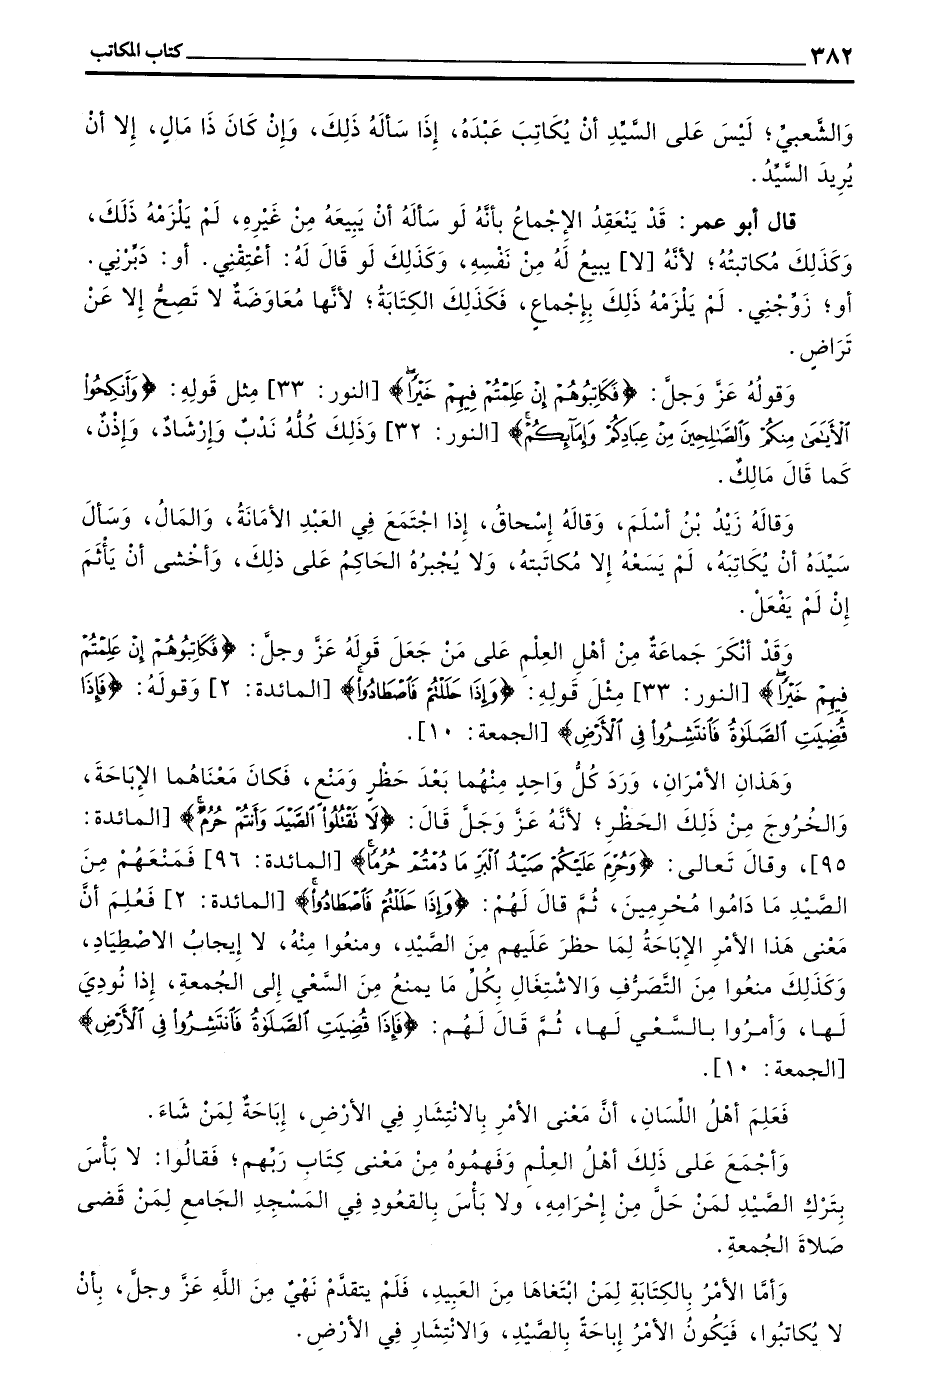 ٣٨٢ كتاب المكاتب
وَالشَّعبيِّ؛ لَيْسَ عَلى السَّيِّدِ أنْ يُكَاتِبَ عَبْدَهُ، إذَا سَألَهُ ذَلِكَ، وَإنْ كَانَ ذَا مَالٍ، إلا أنْ
يُرِيدَ السَّيِّدُ.
قال أبو عمر: قَدْ يَنْعَقِدُ الإجْماعُ بأنَّهُ لَو سَألَهُ أنْ يَبِيعَهُ مِنْ غَيْرِهِ، لَمْ يَلْزَمْهُ ذَلَكَ،
وَكَذَلِكَ مُكاتبتُهُ؛ لأنَّهُ [لا] يبيعُ لَهُ مِنْ نَفْسِهِ، وَكَذَلِكَ لَو قَالَ لَهُ: أعْتِقْنِي. أو: دَبِّرْنِي.
أو؛ زَوِّجْنِي. لَمْ يَلْزَمْهُ ذَلِكَ بِإجْماعٍ، فَكَذَلِكَ الكِتَابَةُ؛ لأنَّها مُعَاوَضَةٌ لا تَصِحُّ إلا عَنْ
تَرَاضٍ.
وَقولُهُ عَزَّ وَجلَّ: ﴿فَكَاتِبُوهُمْ إِنْ عَلِمْتُمْ فِيهِمْ خَيْرًا﴾ [النور: ٣٣] مِثل قَولِهِ: ﴿وَأَنكِحُوا۟
ٱلْأَيَـٰمَىٰ مِنكُمْ وَٱلصَّـٰلِحِينَ مِنْ عِبَادِكُمْ وَإِمَآئِكُمْ﴾ [النور: ٣٢] وَذَلِكَ كُلُّهُ نَدْبٌ وَإرْشَادٌ، وَإذْنٌ،
كَما قَالَ مَالِكٌ.
وَقالَهُ زَيْدُ بْنُ أسْلَمَ، وَقالَهُ إسْحاقُ، إذا اجْتَمَعَ فِي العَبْدِ الأمَانَةُ، وَالمَالُ، وَسَألَ
سَيِّدَهُ أنْ يُكَاتِبَهُ، لَمْ يَسَعْهُ إلا مُكاتَبته، وَلا يُجْبرُهُ الحَاكِمُ عَلى ذلِكَ، وَأخْشى أنْ يَأْثَمَ
إنْ لَمْ يَفْعَلْ.
وَقَدْ أنْكَرَ جَماعَةٌ مِنْ أهْلِ العِلْمِ عَلى مَنْ جَعَلَ قَولَهُ عَزَّ وجلَّ: ﴿فَكَاتِبُوهُمْ إِنْ عَلِمْتُمْ
فِيهِمْ خَيْرًا﴾ [النور: ٣٣] مِثْلَ قَولِهِ: ﴿وَإِذَا حَلَلْتُمْ فَٱصْطَادُوا۟﴾ [المائدة: ٢] وَقولَهُ: ﴿فَإِذَا
قُضِيَتِ ٱلصَّلَوٰةُ فَٱنتَشِرُوا۟ فِى ٱلْأَرْضِ﴾ [الجمعة: ١٠].
وَهَذانِ الأمْرَانِ، وَرَدَ كُلُّ وَاحِدٍ مِنْهُما بَعْدَ حَظْرٍ وَمَنْعٍ، فَكانَ مَعْنَاهُما الإبَاحَةَ،
وَالخُرُوجَ مِنْ ذَلِكَ الحَظْرِ؛ لأنَّهُ عَزَّ وَجَلَّ قَالَ: ﴿لَا تَقْتُلُوا۟ ٱلصَّيْدَ وَأَنتُمْ حُرُمٌ﴾ [المائدة:
٩٥]، وقالَ تَعالى: ﴿وَحُرِّمَ عَلَيْكُمْ صَيْدُ ٱلْبَرِّ مَا دُمْتُمْ حُرُمًا﴾ [المائدة: ٩٦] فَمَنْعَهُمْ مِنَ
الصَّيْدِ مَا دَامُوا مُحْرِمِينَ، ثُمَّ قالَ لَهُمْ: ﴿وَإِذَا حَلَلْتُمْ فَٱصْطَادُوا۟﴾ [المائدة: ٢] فَعُلِمَ أنَّ
مَعْنى هَذا الأمْرِ الإبَاحَةُ لِمَا حظرَ عَلَيهم مِنَ الصَّيْدِ، ومنعُوا مِنْهُ، لا إيجابُ الاصْطِيَادِ،
وَكَذَلِكَ منعُوا مِنَ التَّصَرُّفِ وَالاشْتِغَالِ بِكُلِّ مَا يمنعُ مِنَ السَّعْيِ إلى الجُمعةِ، إذَا نُودِيَ
لَها، وَأمرُوا بالسَّعْيِ لَها، ثُمَّ قَالَ لَهُم: ﴿فَإِذَا قُضِيَتِ ٱلصَّلَوٰةُ فَٱنتَشِرُوا۟ فِى ٱلْأَرْضِ﴾
[الجمعة: ١٠].
فَعَلِمَ أهْلُ اللِّسَانِ، أنَّ مَعْنى الأمْرِ بِالانْتِشَارِ فِي الأرْضِ، إبَاحَةٌ لِمَنْ شَاءَ.
وَأجْمَعَ عَلى ذَلِكَ أهْلُ العِلْمِ وَفَهمُوهُ مِنْ مَعْنى كِتَابِ رَبِّهم؛ فَقالُوا: لا بَأْسَ
بِتَرْكِ الصَّيْدِ لمَنْ حَلَّ مِنْ إحْرَامِهِ، ولا بَأْسَ بِالقعُودِ فِي المَسْجِدِ الجَامعِ لِمَنْ قَضى
صَلاةَ الجُمعةِ.
وَأمَّا الأمْرُ بِالكِتَابَةِ لِمَنْ ابْتَغاهَا مِنَ العَبِيدِ، فَلَمْ يتقدَّمْ نَهْيٌ مِنَ اللَّهِ عَزَّ وجلَّ، بِأنْ
لا يُكاتبُوا، فَيَكُونُ الأمْرُ إباحَةً بِالصَّيْدِ، وَالانْتِشَارِ فِي الأرْضِ.